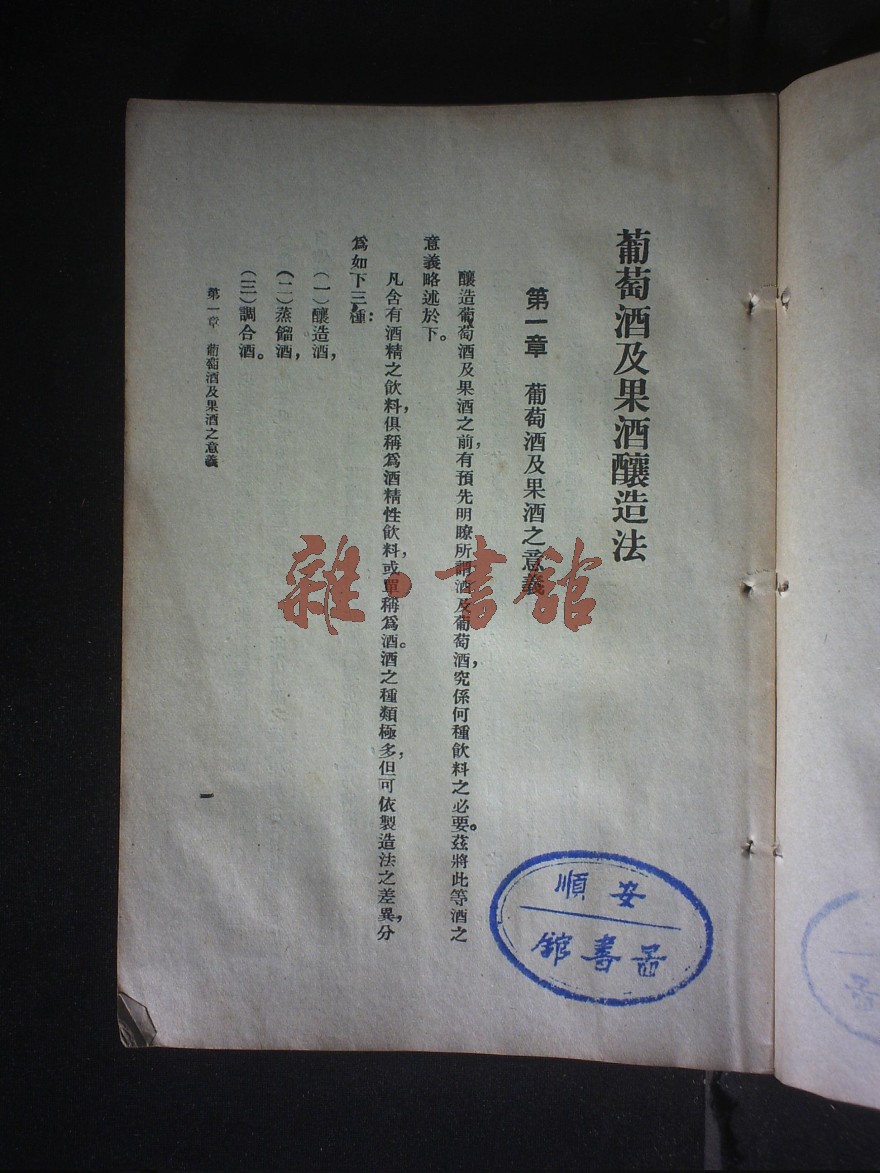 葡萄酒及果酒釀造法
第一章 葡萄酒及果酒之意義
釀造葡萄酒及果酒之前，有預先明瞭所謂酒及葡萄酒，究係何種飲料之必要。茲將此等酒之
意義略述於下。
凡含有酒精之飲料，俱稱爲酒精性飲料，或單稱爲酒。酒之種類極多，但可依製造法之差異，分
爲如下三種：
（一）釀造酒，
（二）蒸餾酒，
（三）調合酒。
第一章 葡萄酒及果酒之意義
一
雜·書館
安順
圕書館